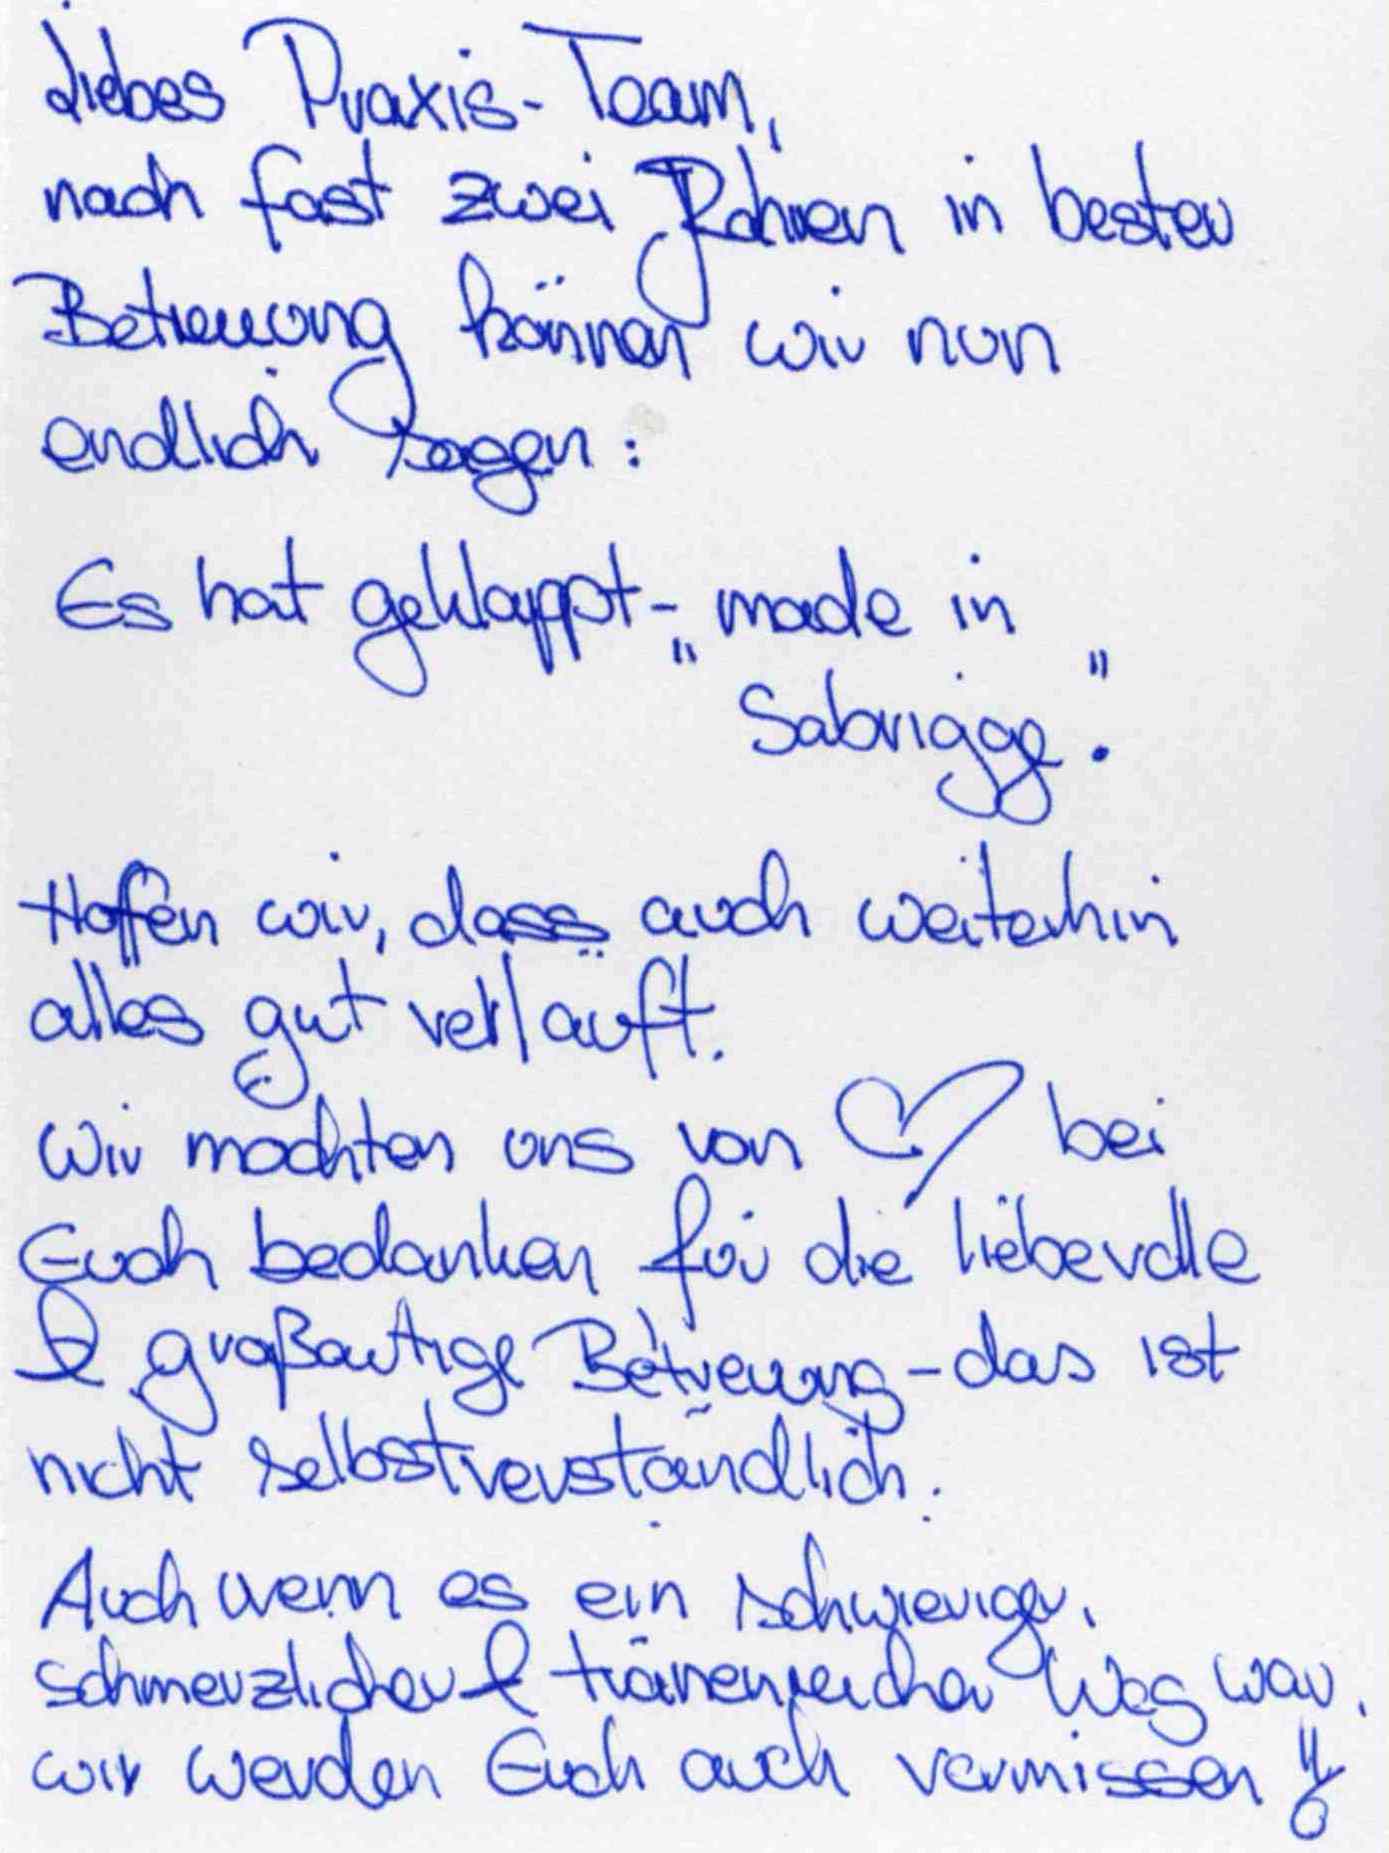 Liebes Praxis-Team,
nach fast zwei Jahren in bester
Betreuung können wir nun
endlich sagen:
Es hat geklappt - „made in
Sabrigge".
Hoffen wir, dass auch weiterhin
alles gut verläuft.
Wir möchten uns von ♡ bei
Euch bedanken für die liebevolle
& großartige Betreuung - das ist
nicht selbstverständlich.
Auch wenn es ein schwieriger,
schmerzlicher & tränenreicher Weg war,
wir werden Euch auch vermissen